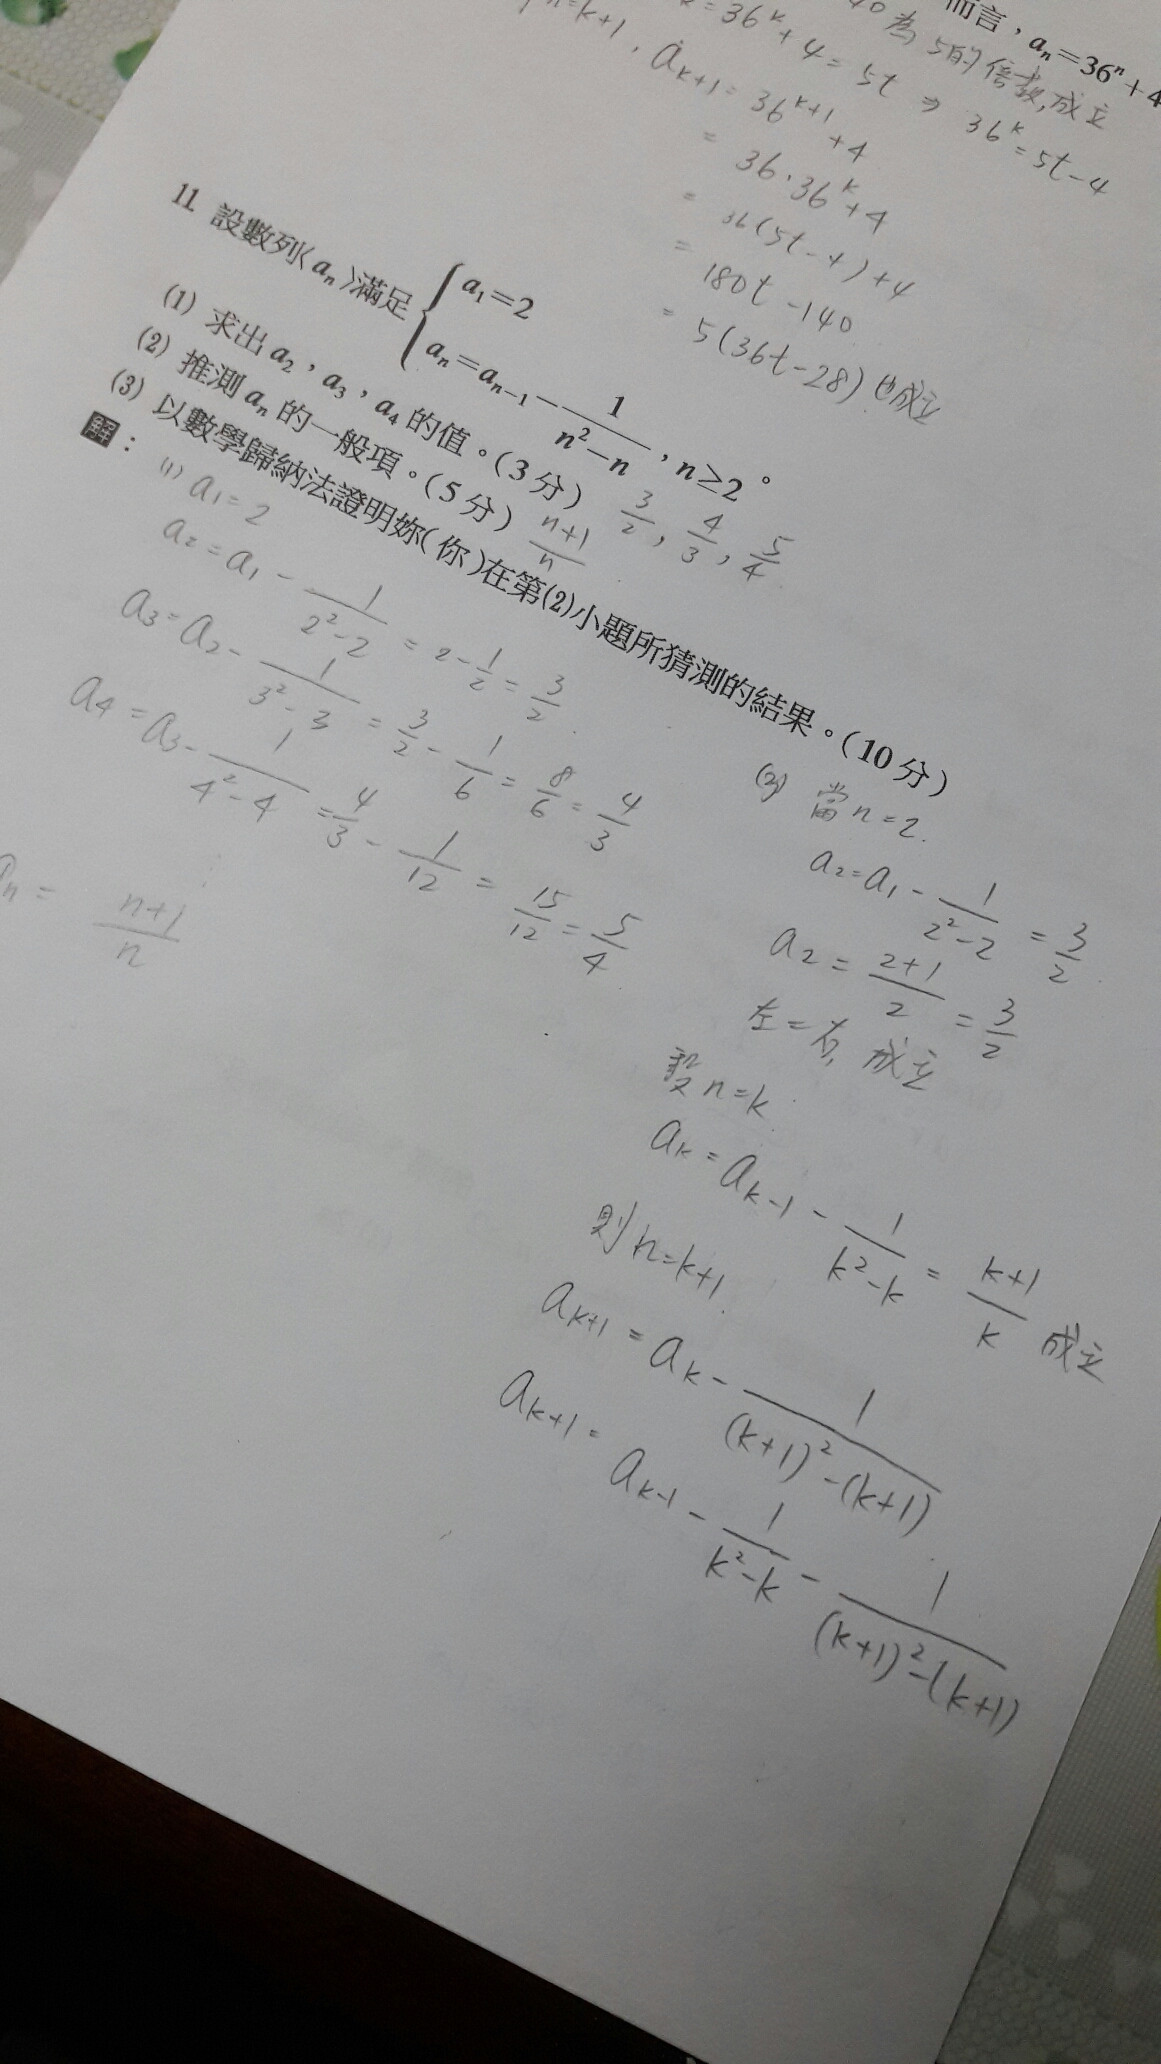 而言，aₙ=36ⁿ+4
40為5的倍數,成立
k=36ᵏ+4=5t ⇒ 36ᵏ=5t-4
n=k+1, aₖ₊₁=36ᵏ⁺¹+4
=36·36ᵏ+4
=36(5t-4)+4
=180t-140
=5(36t-28)也成立
11. 設數列〈aₙ〉滿足{a₁=2
aₙ=aₙ₋₁-1/(n²-n)，n≥2。
(1) 求出a₂，a₃，a₄的值。(3分) 3/2, 4/3, 5/4
(2) 推測aₙ的一般項。(5分) (n+1)/n
(3) 以數學歸納法證明妳(你)在第(2)小題所猜測的結果。(10分)
解：
(1) a₁=2
a₂=a₁-1/(2²-2)=2-1/2=3/2
a₃=a₂-1/(3²-3)=3/2-1/6=8/6=4/3
a₄=a₃-1/(4²-4)=4/3-1/12=15/12=5/4
aₙ=(n+1)/n
(3) 當n=2.
a₂=a₁-1/(2²-2)=3/2
a₂=(2+1)/2=3/2
左=右, 成立
設n=k
aₖ=aₖ₋₁-1/(k²-k)=(k+1)/k 成立
則n=k+1
aₖ₊₁=aₖ-1/((k+1)²-(k+1))
aₖ₊₁=aₖ₋₁-1/(k²-k)-1/((k+1)²-(k+1))